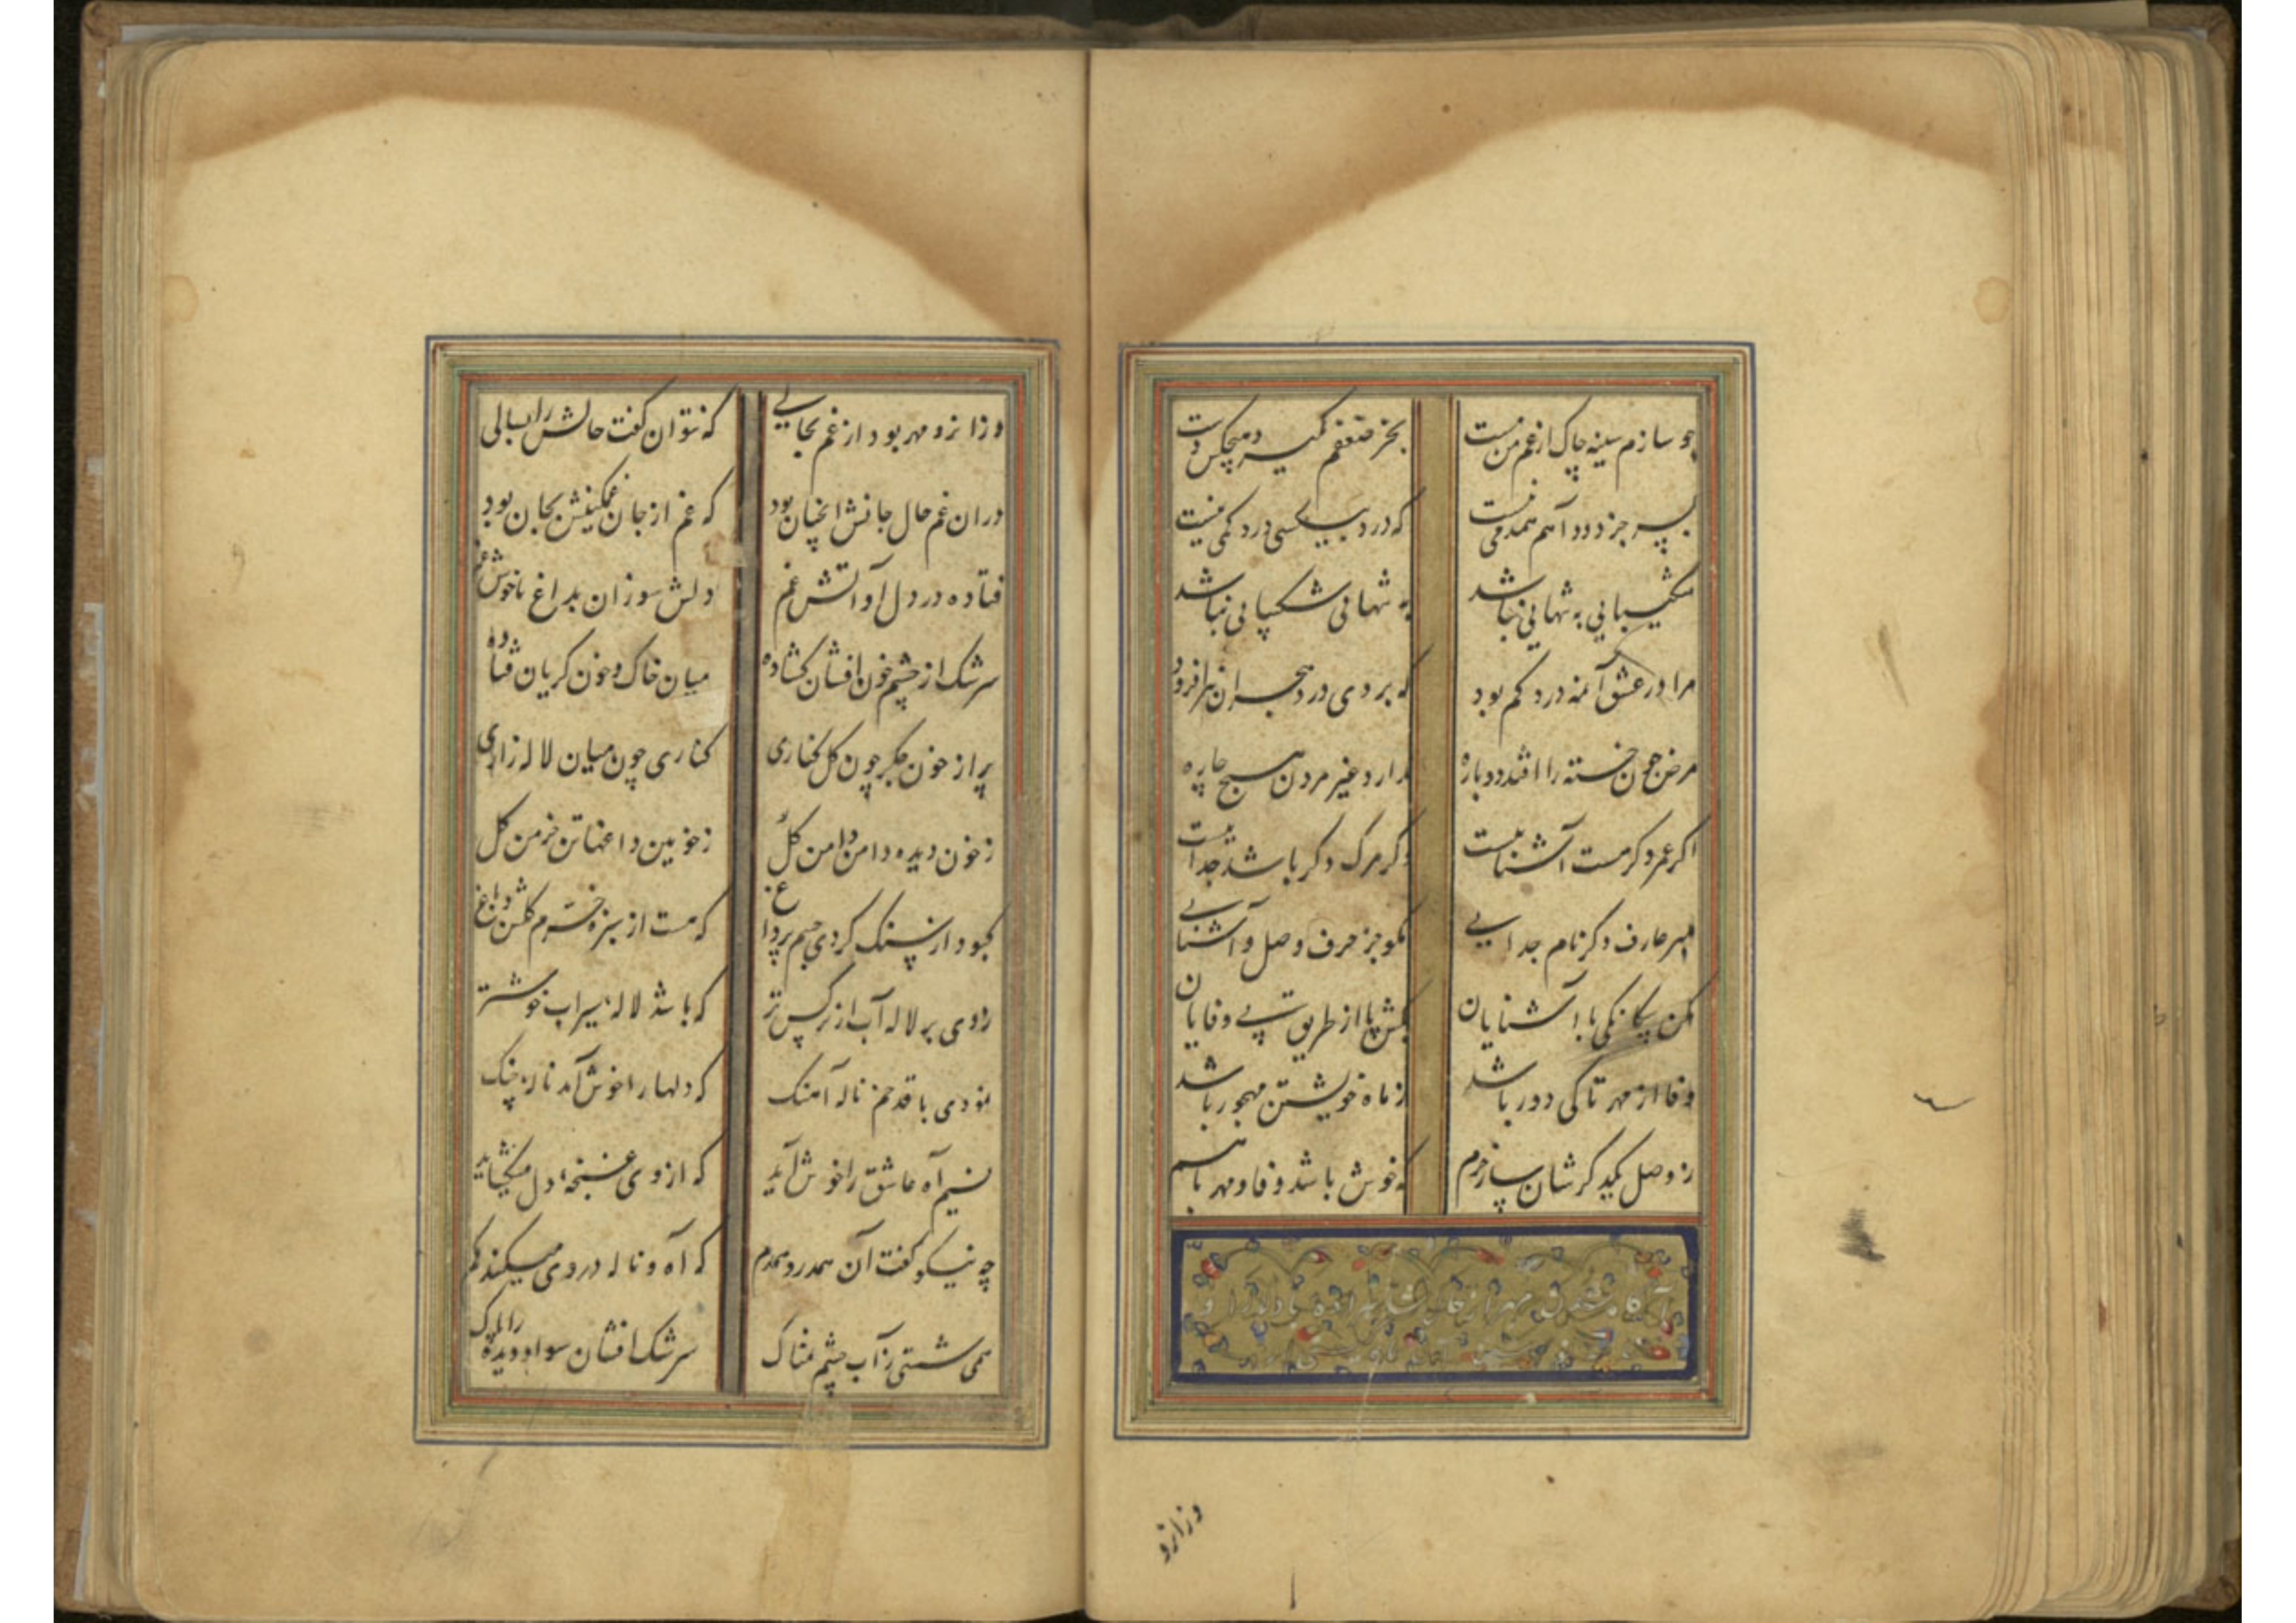 چو سازم سینه چاک از غم من مست
بجز ضعفم نمیگیرد کس دست
بسر جز دود آهم همدمی نیست
که درد بیکسی درد کمی نیست
شکیبایی به تنهایی نباشد
به تنهائی شکیبائی نباشد
مرا در عشق آنمه درد کم بود
که بر وی درد هجران هم افزود
مرض چون خسته را افتد دوباره
ندارد غیر مردن هیچ چاره
اگر عمر دگر هست آشناییست
وگر مرگ دگر باشد جداییست
مبر عارف دگر نام جدایی
مگو جز حرف وصل و آشنایی
مکن بیگانگی با آشنایان
بکش پا از طریق بی وفایان
وفا از مهر تا کی دور باشد
ز ماه خویشتن مهجور باشد
ز وصل یکدیگرشان ساز خرم
که خوش باشد وفا و مهر با هم
وزانرو
وزانرو مهر بود از غم بحالی
که نتوان گفت حالش را بسالی
دران غم حال جانش انچنان بود
که غم از جان غمگینش بجان بود
فتاده در دل او آتش غم
دلش سوزان بداغ ناخوش غم
سرشک از چشم خون افشان گشاده
میان خاک و خون گریان فتاده
پر از خون جگر چون گل کناری
کناری چون میان لاله زاری
ز خون دیده دامن دامن گل
ز خونین داغها تن خرمن گل
کبود از سنگ کردی جسم پر داغ
که هست از سبزه خرم گلشن و باغ
زدی بر لاله آب از نرگس تر
که باشد لاله سیراب خوشتر
نمودی با قد خم ناله آهنگ
که دلها را خوش آمد ناله چنگ
نسیم آه عاشق را خوش آید
که از وی غنچهٔ دل میگشاید
چه نیکو گفت آن همدرد همدم
که آه و ناله دردومی میکند کم
همی شستی ز آب چشم نمناک
سرشک افشان سواد دیده را پاک